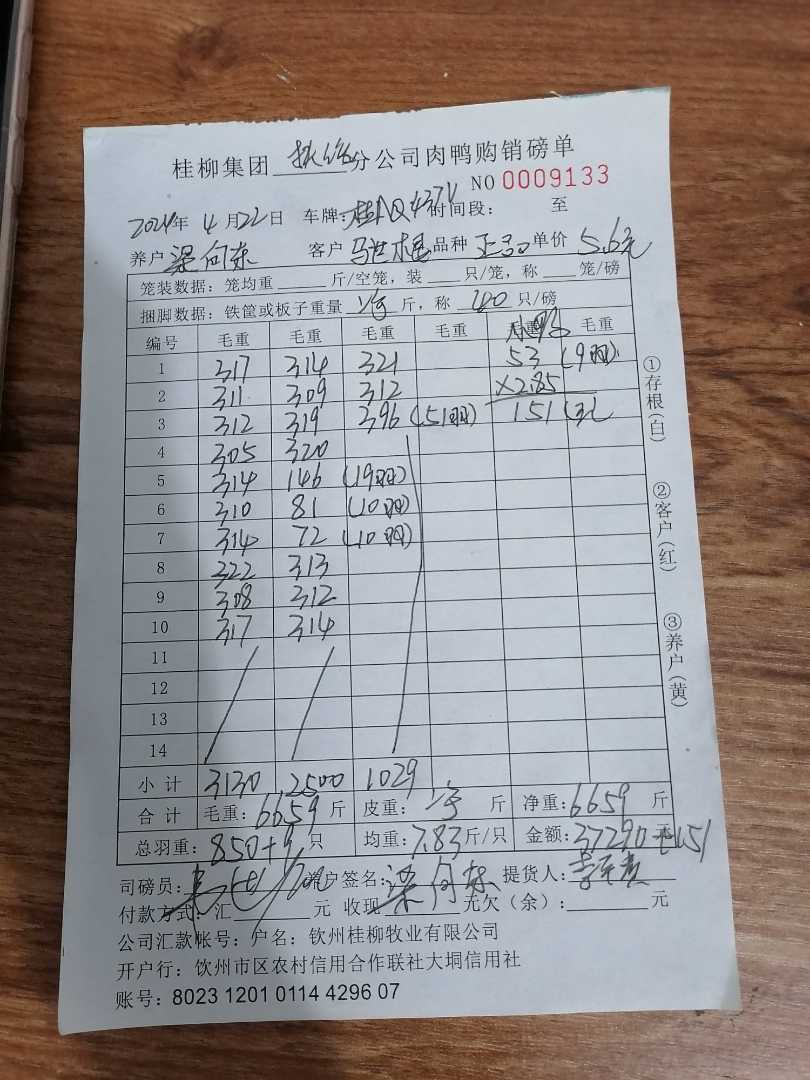 桂柳集团 分公司肉鸭购销磅单
NO 0009133
2024年 4月22日 车牌:桂 时间段: 至
养户 梁向东 客户 马世 品种 正品 单价 5.6元
笼装数据:笼均重 斤/空笼,装 只/笼,称 笼/磅
捆脚数据:铁筐或板子重量 斤,称 只/磅
编号 毛重 毛重 毛重 毛重 毛重
1 317 314 321 53 (9羽)
2 311 309 312 ×2.85
3 312 319 396 (51羽) 151
4 305 320
5 314 146 (19羽)
6 310 81 (10羽)
7 314 72 (10羽)
8 322 313
9 308 312
10 317 314
11
12
13
14
小计 3130 2500 1029
合计 毛重:6659 斤 皮重: 斤 净重:6659 斤
总羽重:850+9 只 均重:7.83 斤/只 金额:37290 元 +151
司磅员: 养户签名:梁向东 提货人:
付款方式:汇 元 收现 元欠(余): 元
公司汇款帐号:户名:钦州桂柳牧业有限公司
开户行:钦州市区农村信用合作联社大垌信用社
账号:8023 1201 0114 4296 07
①存根(白)
②客户(红)
③养户(黄)